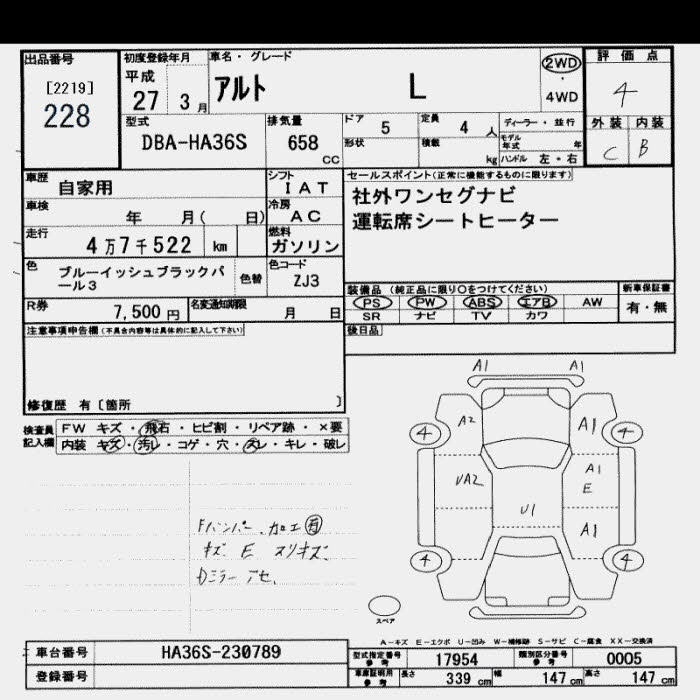 出品番号
[2219]
228
初度登録年月
平成
27 3月
車名・グレード
アルト L
2WD
・
4WD
評価点
4
外装 内装
C B
型式
DBA-HA36S
排気量
658
CC
ドア
5
定員
4 人
ディーラー・並行
形状
積載
kg
モデル年式 年
ハンドル 左・右
車歴
自家用
シフト
IAT
車検
年 月( 日)
冷房
AC
走行
4万7千522 km
燃料
ガソリン
色
ブルーイッシュブラックパール3
色替
色コード
ZJ3
R券
7,500円
名変通知期限
月 日
セールスポイント(正常に機能するものに限ります)
社外ワンセグナビ
運転席シートヒーター
装備品 (純正品に限り○をつけてください)
新車保証書
PS PW ABS エアB AW
有・無
SR ナビ TV カワ
後日品
注意事項申告欄(不具合内容等は具体的に記入して下さい)
修復歴 有〔箇所 〕
検査員
記入欄
FW キズ・飛石・ヒビ割・リペア跡・×要
内装 キズ・汚レ・コゲ・穴・スレ・キレ・破レ
Fバンパー 加工有
キズ E スリキズ
Dミラー アセ
A1 A1
A2 A1
4 4
UA2 A1
E
U1
A1
4 4
スペア
A-キズ E-エクボ U-凹み W-補修跡 S-サビ C-腐食 XX-交換済
車台番号
HA36S-230789
登録番号
型式指定番号
参考
17954
類別区分番号
参考
0005
車庫証明用
参考
長さ 339 cm 幅 147 cm 高さ 147 cm